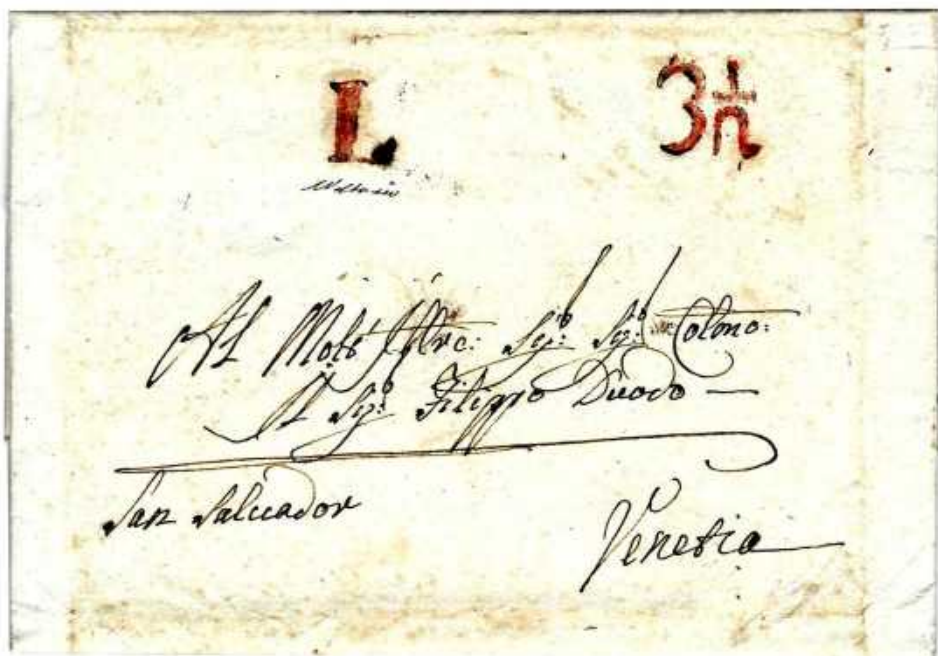 L 3½
Al Molt Illre: Sigr: Sigr: Colmo:
Il Sigr: Filippo Duodo
San Saluador
Venetia